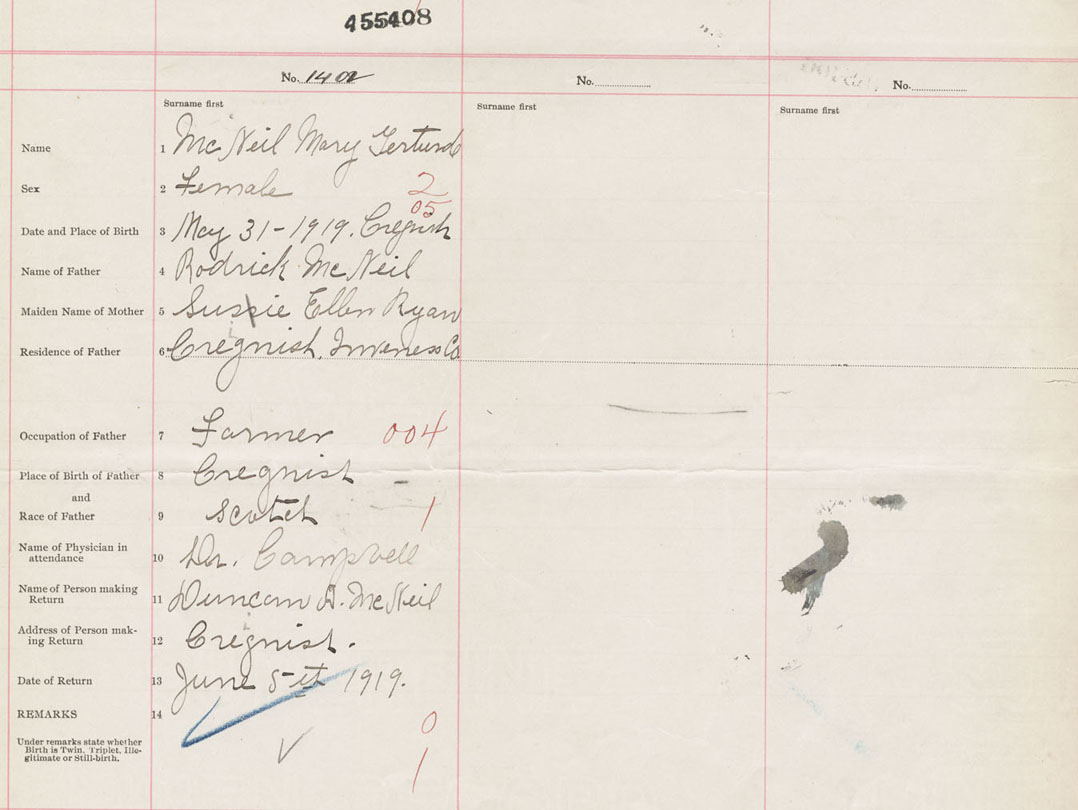 455408
No. 1402
No.
No.
Surname first
Surname first
Surname first
Name 1 Mc Neil Mary Gerturde
Sex 2 Female 2
05
Date and Place of Birth 3 May 31-1919. Cregnish
Name of Father 4 Rodrick Mc Neil
Maiden Name of Mother 5 Sussie Ellen Ryan
Residence of Father 6 Cregnish, Inverness Co
Occupation of Father 7 Farmer 004
Place of Birth of Father 8 Cregnist
and
Race of Father 9 Scotch 1
Name of Physician in
attendance 10 Dr. Campbell
Name of Person making
Return 11 Duncan D. Mc Neil
Address of Person mak-
ing Return 12 Cregnist.
Date of Return 13 June 5-th 1919.
REMARKS 14
0
Under remarks state whether
Birth is Twin, Triplet, Ille-
gitimate or Still-birth.
1